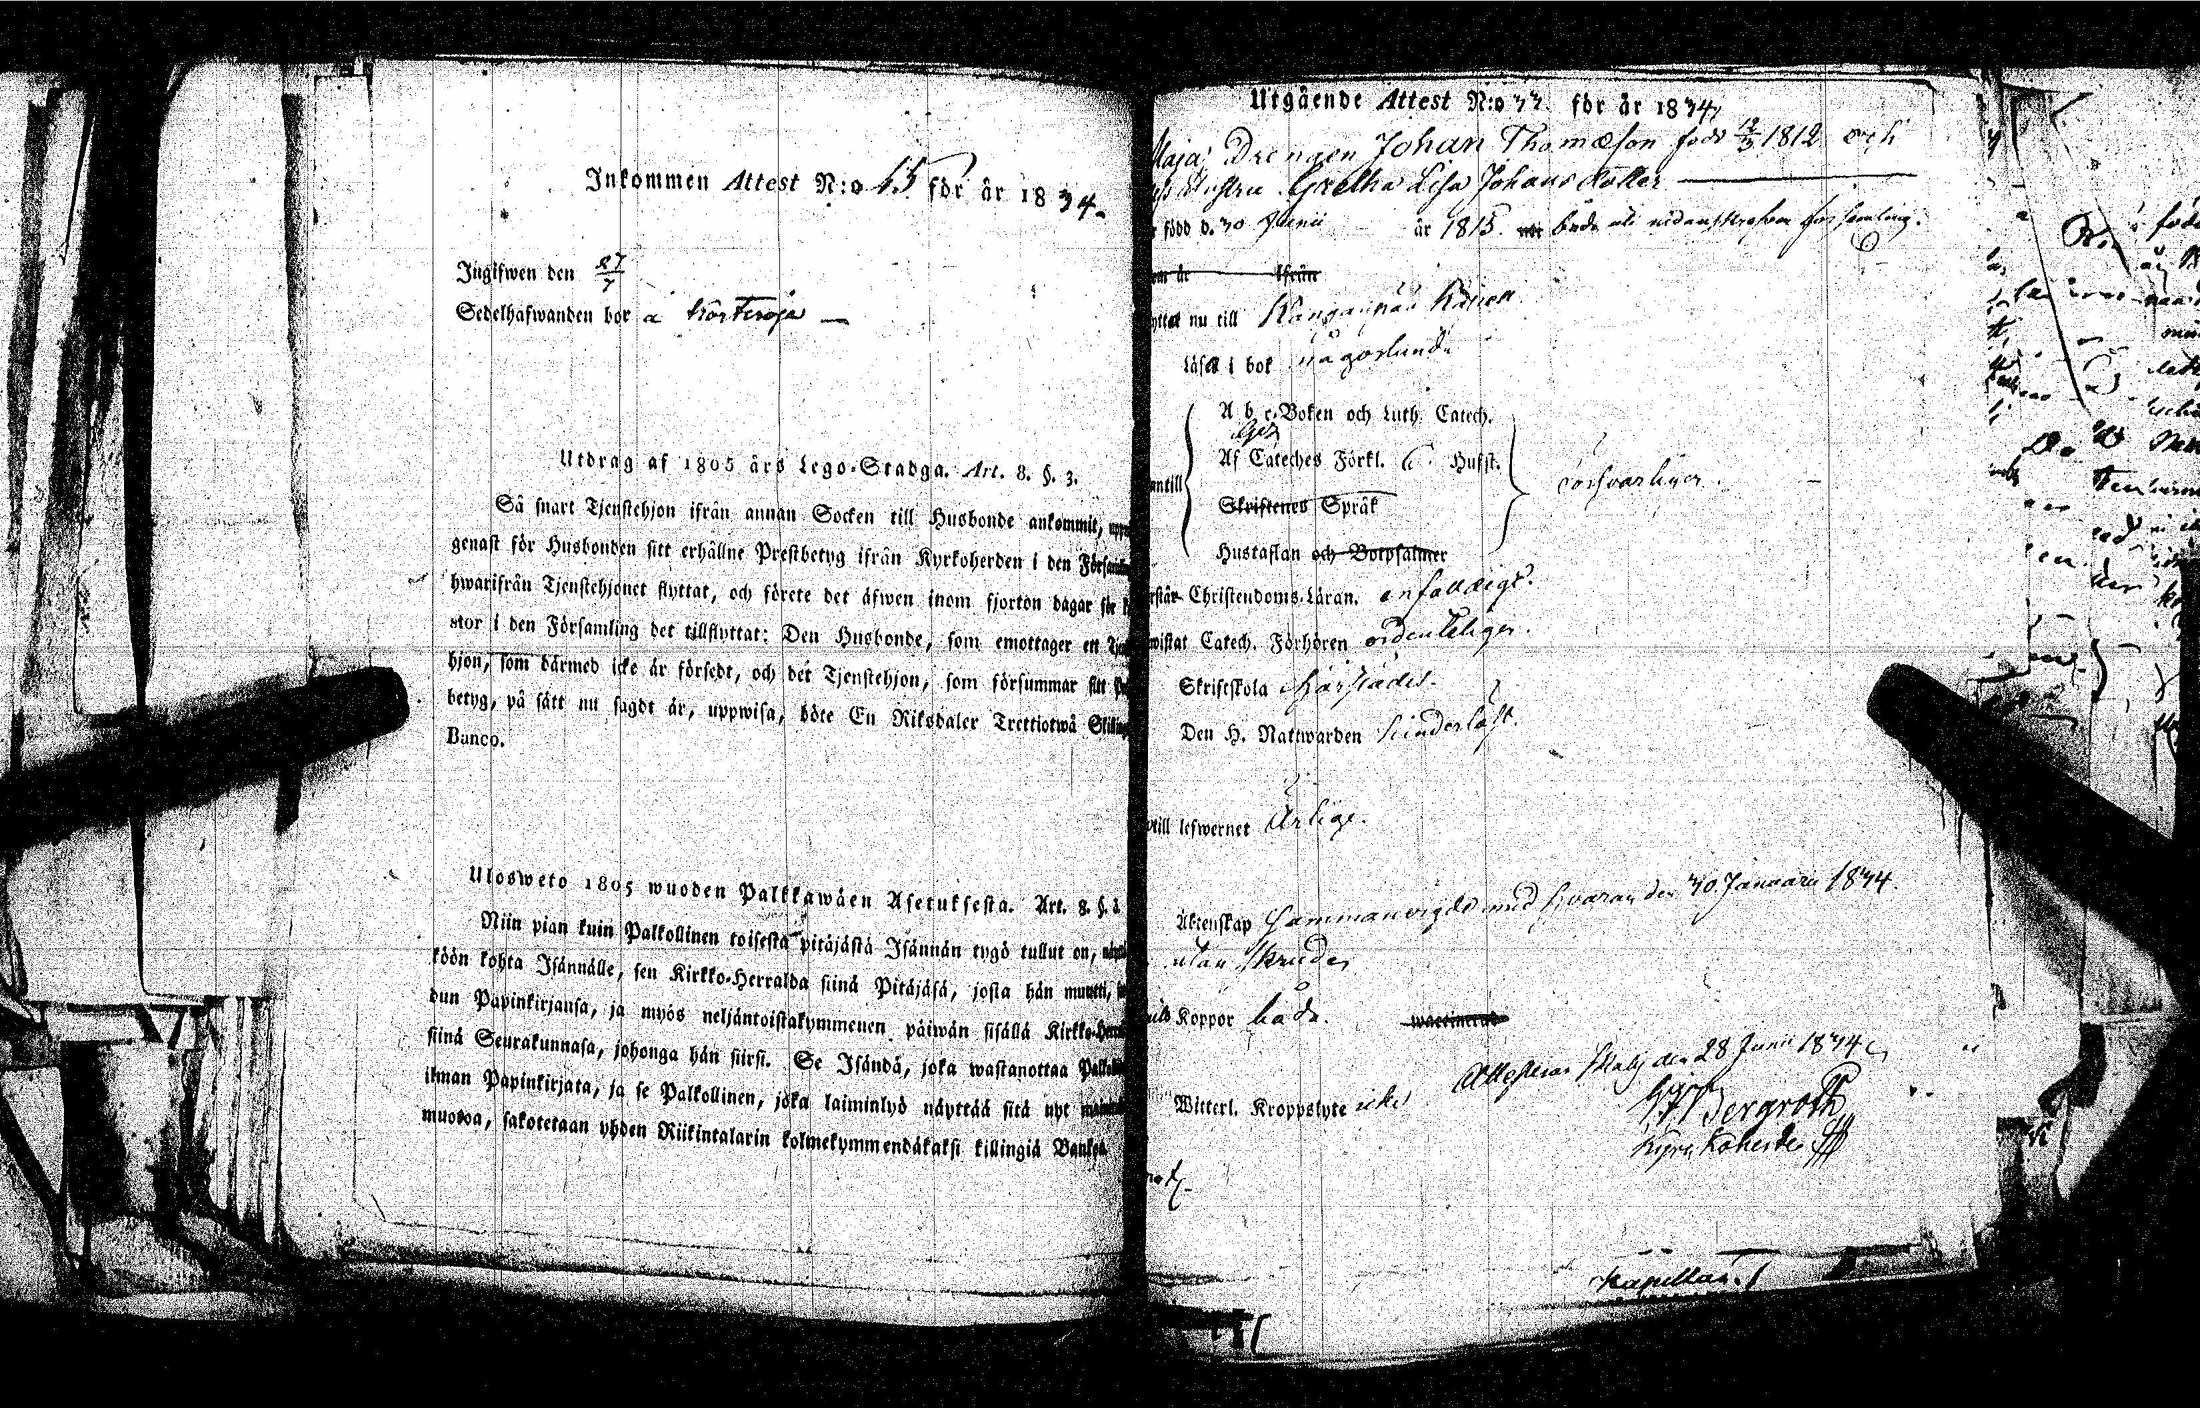 Inkommen Attest N:o 45 för år 1834.
Ingifwen den 27/7
Sedelhafwanden bor å
Utdrag af 1805 års Lego-Stadga. Art. 8. §. 3.
Så snart Tjenstehjon ifrån annan Socken till Husbonde ankommit,
genast för Husbonden sitt erhållne Prestbetyg ifrån Kyrkoherden i den
hwarifrån Tjenstehjonet flyttat, och förete det äfwen inom fjorton dagar för
stor i den Församling det tillflyttat: Den Husbonde, som emottager en
hjon, som därmed icke är försedt, och det Tjenstehjon, som försummar sitt
betyg, på sätt nu sagdt är, uppwisa, böte En Riksdaler Trettiotwå
Banco.
Ulosweto 1805 wuoden Palkkawäen Asetuksesta. Art. 8. §. 3
Niin pian kuin Palkollinen toisesta pitäjästä Isännän tygö tullut on,
köön kohta Isännälle, sen Kirkko-Herralda siinä Pitäjäsä, josta hän muutti,
dun Papinkirjansa, ja myös neljäntoistakymmenen päiwän sisällä
siinä Seurakunnasa, johonga hän siirsi. Se Isändä, joka wastanottaa
ilman Papinkirjata, ja se Palkollinen, joka laiminlyö näyttää sitä nyt
muotoa, sakotetaan yhden Riikintalarin kolmekymmendäkaksi killingiä
Utgående Attest N:o 33 för år 1834
Drengen Johan Thomæson född 1812 och
Hustru Gretha Lisa Johans dotter
född d. 30 Junii år 1815. både uti nedanskrefven församling.
är ifrån
nu till
Läser i bok någorlunda
A b c-Boken och Luth. Catech.
Af Cateches Förkl. Hufst.
Skriftenes Språk
försvarligen.
Hustaflan och Botpsalmer
Christendoms-Läran. enfaldigt.
Catech. Förhören ordenteligen.
Skriftskola härstädes.
Den H. Nattwarden
till lefwernet Ärlige.
Äktenskap Sammanvigde med hvaran den 30 Januarii 1834.
utan
Koppor båda.
Attesterar den 28 Junii 1834
Bergroth
Witterl. Kroppslyte icke
Kyrkoherde
Kapellan.